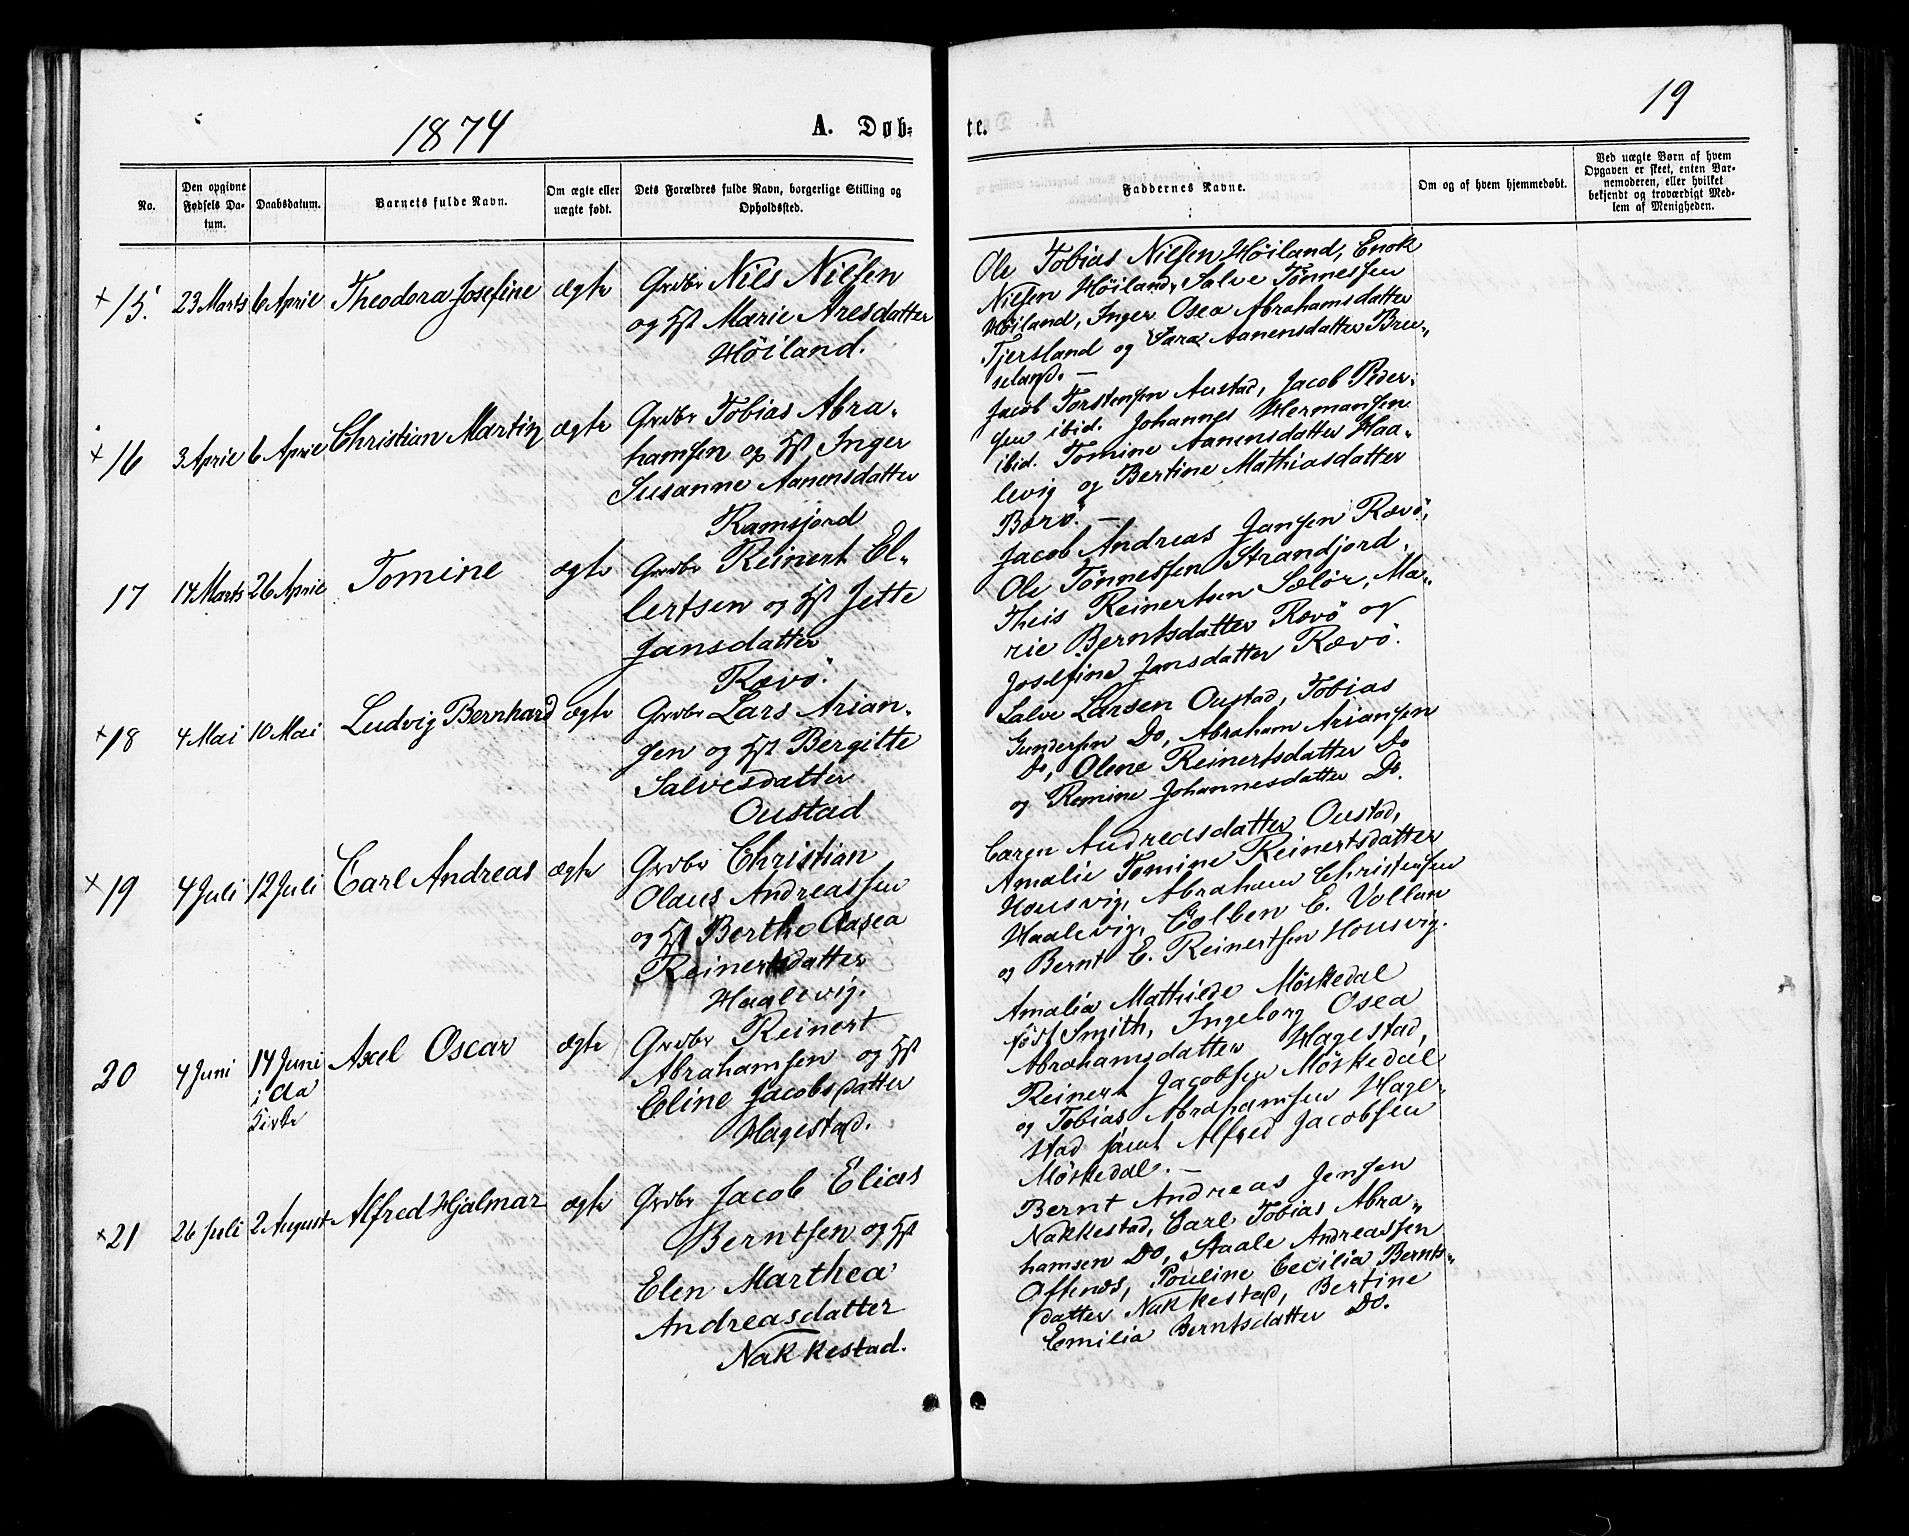 1874
A. Døb-
te.
19
No.
Den opgivne Fødsels Da-
tum.
Daabsdatum.
Barnets fulde Navn.
Om ægte eller uægte født.
Dets Forældres fulde Navn, borgerlige Stilling og
Opholdssted.
Faddernes Navne.
Om og af hvem hjemmedøbt.
Ved uægte Børn af hvem
Opgaven er skeet, enten Bar-
nemoderen, eller hvilket
bekjendt og troværdigt Med-
lem af Menigheden.
+ 15. 23 Marts 6 April Theodora Josefine ægte
Grdbr Nils Nielsen
og Hst Marie Aresdatter
Høiland.
Ole Tobias Nielsen Høiland, Enok
Nielsen Høiland, Salve Tønnessen
Høiland, Inger Osea Abrahamsdatter
Tjersland og Sara Aanensdatter Bre-
seland. —
+ 16 3 April 6 April Christian Martin ægte
Grdbr Tobias Abra-
hamsen og Hst Inger
Susanne Aanensdatter
Ramsjord
Jacob Torstensen Austad, Jacob Peder-
sen ibid. Johannes Hermansen
ibid. Tomine Aanensdatter Haa-
levig og Bertine Mathiasdatter
Borø. —
17 14 Marts 26 April Tomine ægte
Grdbr Reinert El-
lertsen og Hst Jette
Jansdatter
Rævø.
Jacob Andreas Jansen Rævø,
Ole Tønnessen Strandjord,
Theis Reinertsen Sælør, Ma-
rie Berntsdatter Rævø og
Josefine Jansdatter Rævø.
+ 18 4 Mai 10 Mai Ludvig Bernhard ægte
Grdbr Lars Arian-
sen og Hst Bergitte
Salvesdatter
Oustad
Salve Larsen Oustad, Tobias
Gundersen Do, Abraham Ariansen
Do, Olene Reinertsdatter Do
og Romine Johannesdatter Do.
+ 19 4 Juli 12 Juli Carl Andreas ægte
Grdbr Christian
Olaus Andreassen
og Hst Berthe Aasea
Reinertsdatter
Haalevig.
Caren Andreasdatter Oustad,
Amalie Tomine Reinertsdatter
Housvig, Abraham Christensen
Haalevig, Colben E. Vollan
og Bernt E. Reinertsen Housvig.
20 4 Juni 14 Juni Axel Oscar ægte
i Aa
Kirke
Grdbr Reinert
Abrahamsen og Hst
Eline Jacobsdatter
Hagestad.
Amalia Mathilde Møskedal
født Smith, Ingeborg Osea
Abrahamsdatter Hagestad,
Reinert Jacobsen Møskedal
og Tobias Abrahamsen Hage-
stad samt Alfred Jacobsen
Møskedal. —
+ 21 26 Juli 2 August Alfred Hjalmar ægte
Grdbr Jacob Elias
Berntsen og Hst
Elen Marthea
Andreasdatter
Nakkestad.
Bernt Andreas Jensen
Nakkestad, Carl Tobias Abra-
hamsen Do, Staale Andreassen
Oftenes, Pouline Cecilia Bernts-
datter Nakkestad, Bertine
Emilia Berntsdatter Do.